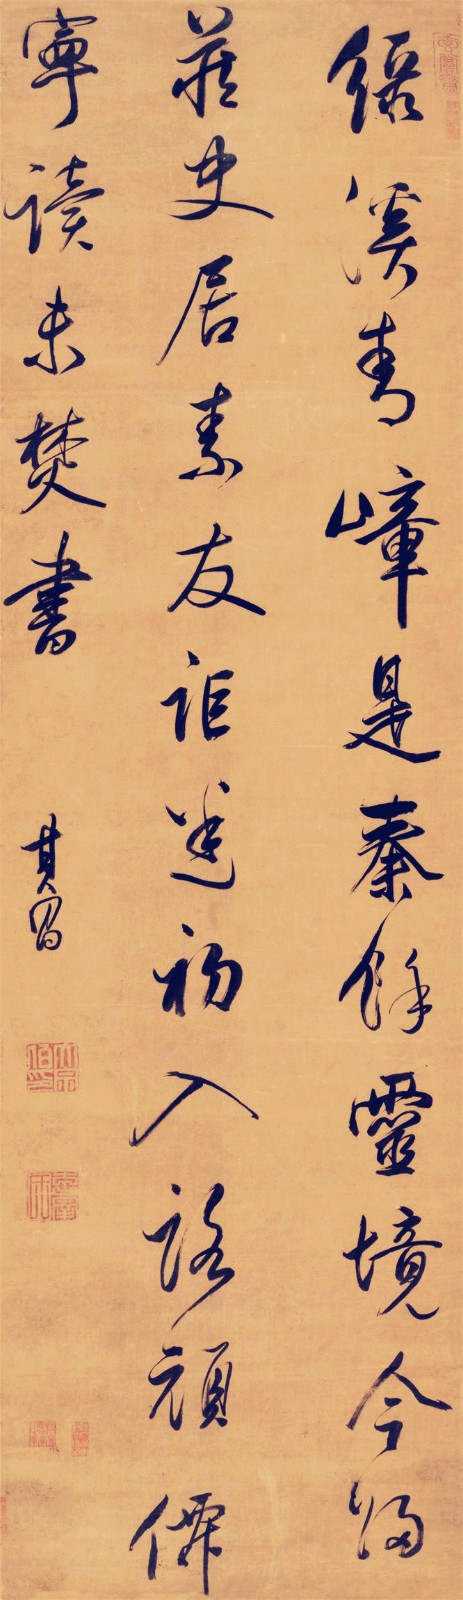 綠溪青嶂是秦餘靈境今歸
莊史居素友詎迷初入路頑僊
寧讀未焚書
其昌